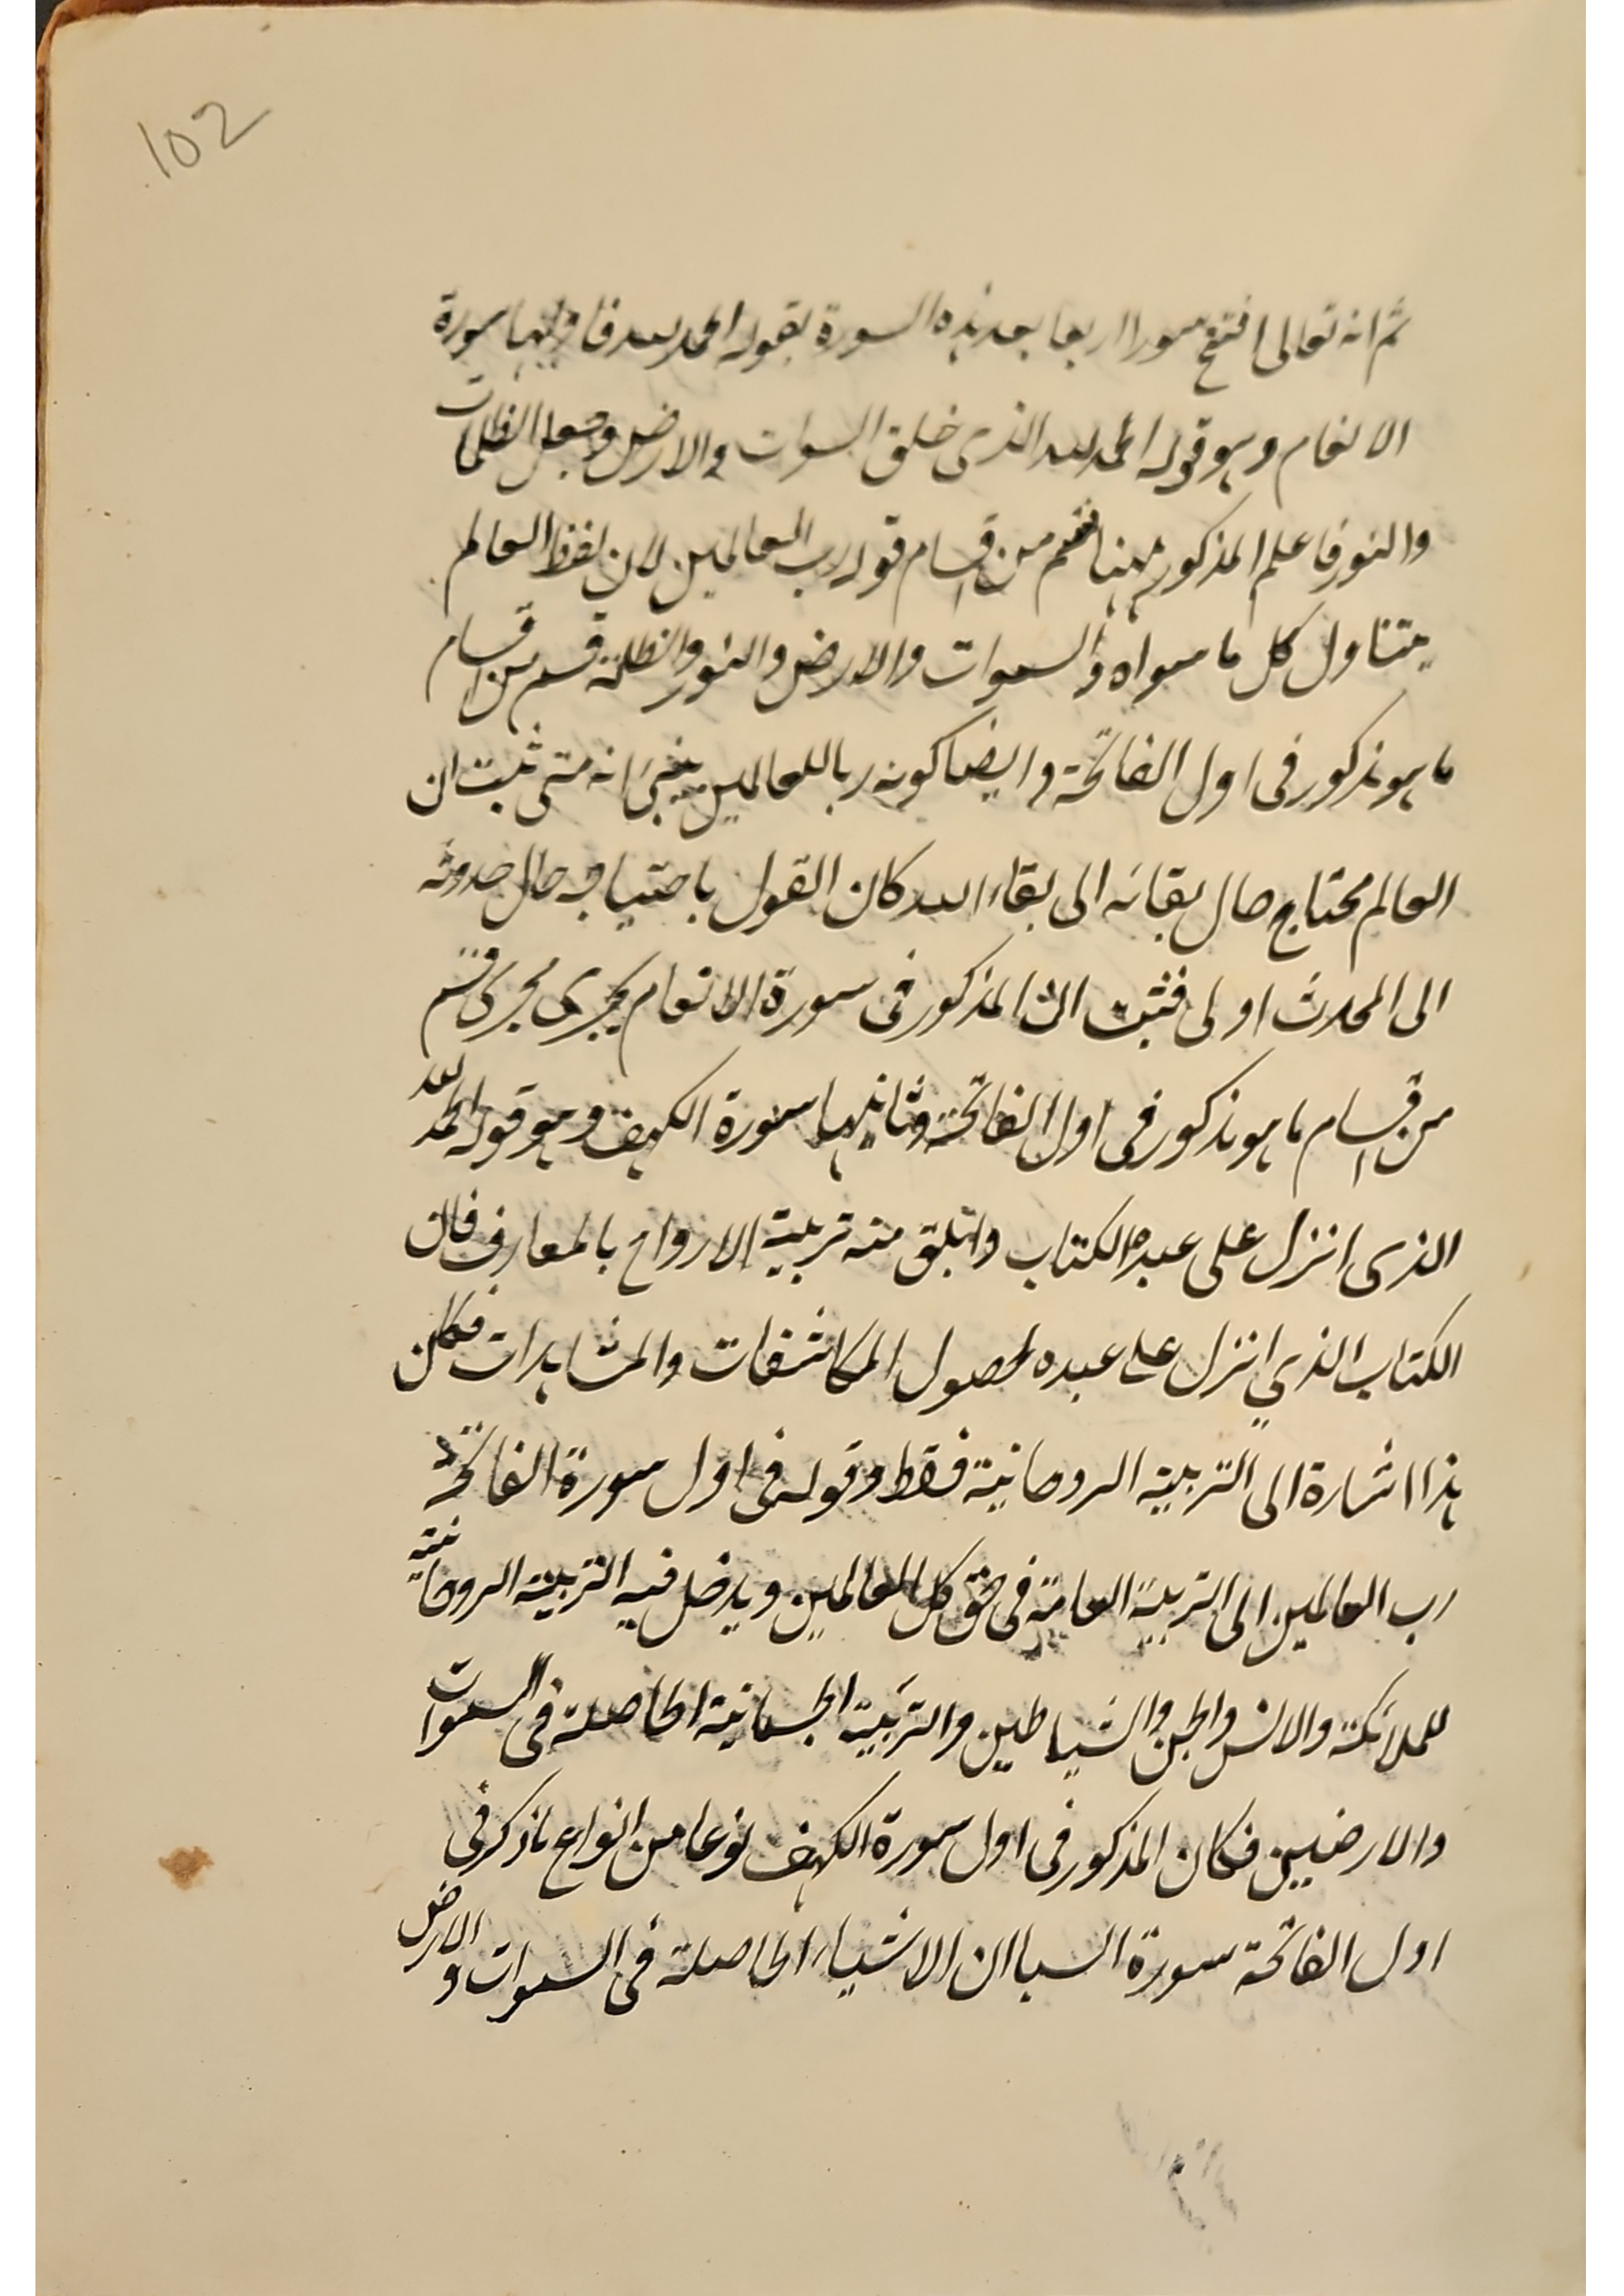 102
ثم انه تعالى افتتح سورا اربعا بعد هذه السورة بقوله الحمد لله فاولها سورة
الانعام وهو قوله الحمد لله الذى خلق السموات والارض وجعل الظلمات
والنور فاعلم المذكور ههنا قسم من اقسام قوله رب العالمين لان لفظ العالم
يتناول كل ما سواه والسموات والارض والنور والظلمة قسم من اقسام
ما هو مذكور فى اول الفاتحة وايضا كونه ربا للعالمين انه متى ثبت ان
العالم محتاج حال بقائه الى بقاء الله كان القول باحتياجه حال حدوثه
الى المحدث اولى فثبت ان المذكور فى سورة الانعام يجرى مجرى قسم
من اقسام ما هو مذكور فى اول الفاتحة وثانيها سورة الكهف وهو قوله الحمد لله
الذى انزل على عبده الكتاب منه تربية الارواح بالمعارف فان
الكتاب الذي انزل على عبده لحصول المكاشفات والمشاهدات فكان
هذا اشارة الى التربية الروحانية فقط وقوله فى اول سورة الفاتحة
رب العالمين الى التربية العامة فى حق كل العالمين ويدخل فيه التربية الروحانية
للملائكة والانس والجن والشياطين والتربية الجسمانية الحاصلة فى السموات
والارضيين فكان المذكور فى اول سورة الكهف نوعا من انواع ما ذكر فى
اول الفاتحة سورة السبا ان الاشياء الحاصلة فى السموات والارض